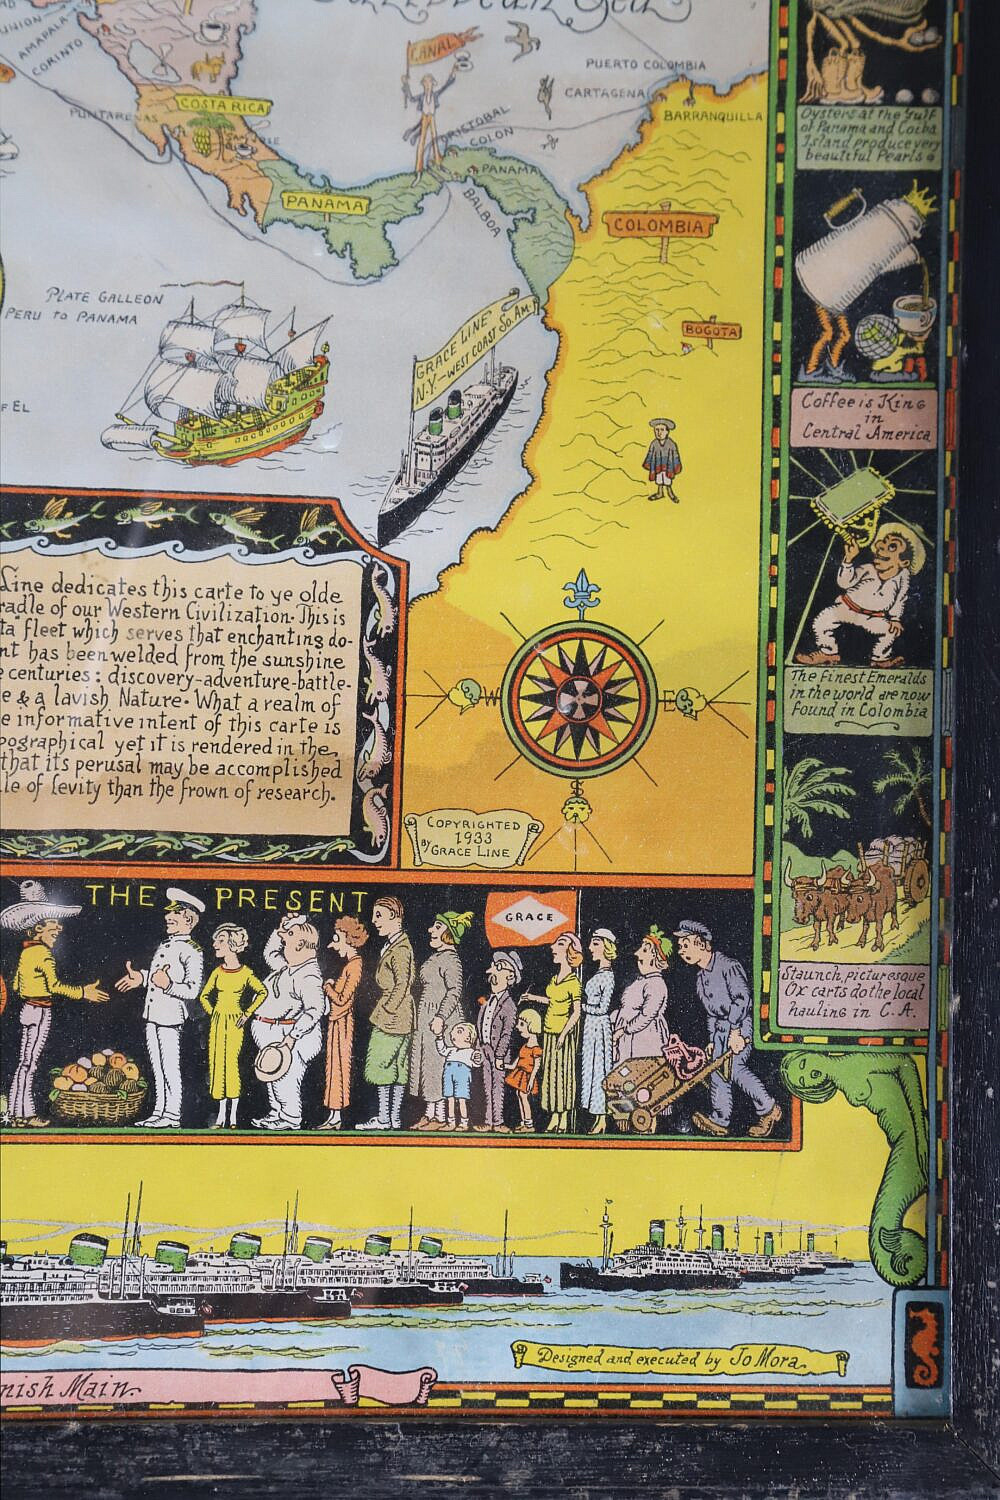 UNION
AMAPALA
CORINTO
PUNTARENAS
COSTA RICA
CANAL
PUERTO COLOMBIA
CARTAGENA
BARRANQUILLA
CRISTOBAL
COLON
PANAMA
BALBOA
PANAMA
COLOMBIA
BOGOTA
PLATE GALLEON
PERU to PANAMA
F EL
GRACE LINE
N.Y.-WEST COAST So. Am.
Line dedicates this carte to ye olde
radle of our Western Civilization. This is
ta fleet which serves that enchanting do-
nt has been welded from the sunshine
e centuries: discovery-adventure-battle-
e & a lavish Nature. What a realm of
e informative intent of this carte is
pographical yet it is rendered in the
that its perusal may be accomplished
le of levity than the frown of research.
COPYRIGHTED
1933
By GRACE LINE
THE PRESENT
GRACE
Oysters at the Gulf
of Panama and Cocos
Island produce very
beautiful Pearls
Coffee is King
in
Central America
The finest Emeralds
in the world are now
found in Colombia
Staunch, picturesque
Ox carts do the local
hauling in C. A.
Designed and executed by Jo Mora
nish Main.